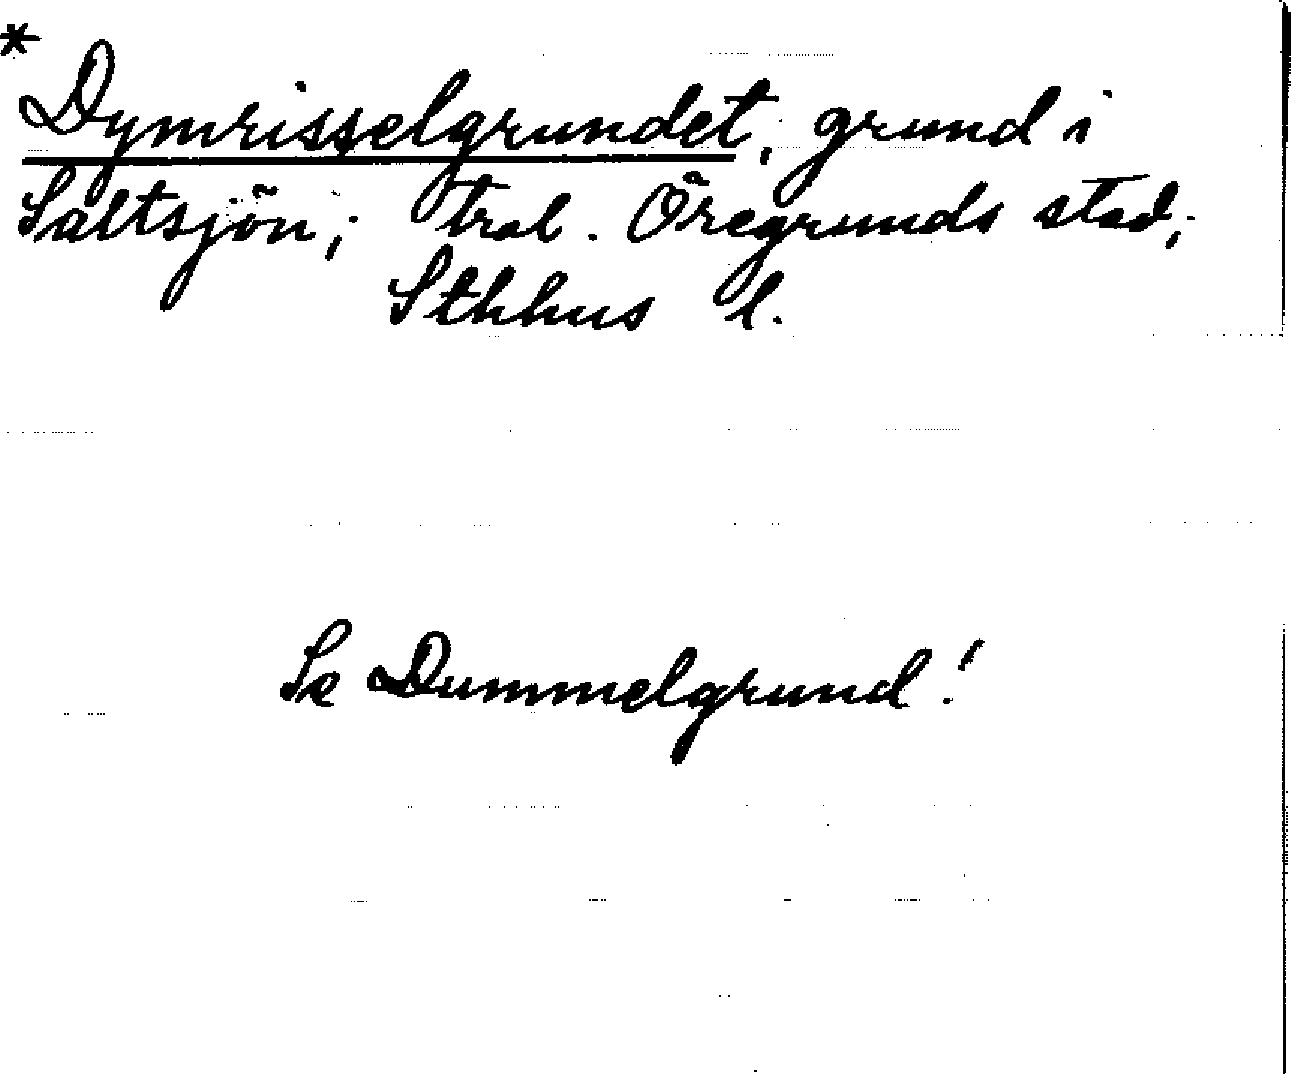 *
Dymrisselgrundet, grund i
Saltsjön; trol. Öregrunds stad;
Sthlms l.
Se Dummelgrund!